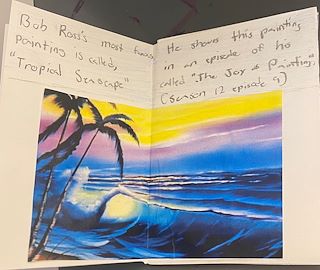 Bob Ross's most famous
painting is called,
"Tropical Seascape"
He shows this painting
in an episode of his
called "The Joy of Painting".
(Season 12 episode 9)